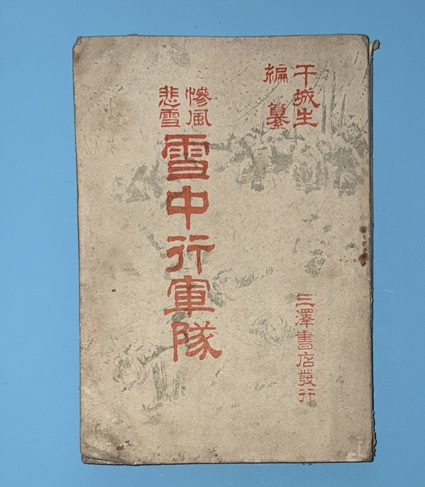 干城生
編纂
惨風
悲雪
雪中行軍隊
三澤書店發行